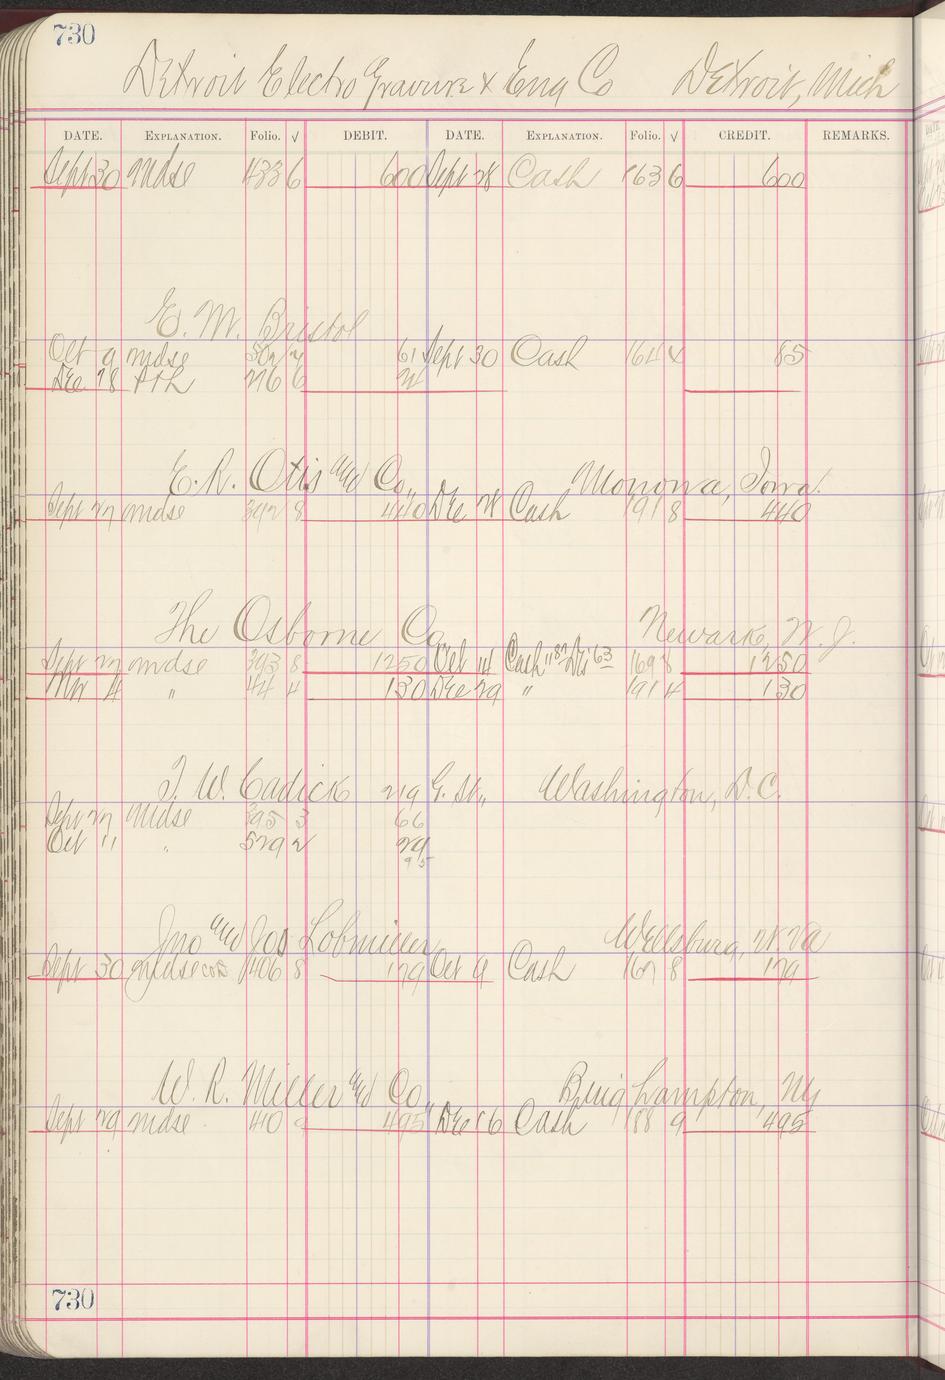 730
Detroit Electro Gravure & Eng Co Detroit, Mich
DATE. EXPLANATION. Folio. √ DEBIT. DATE. EXPLANATION. Folio. √ CREDIT. REMARKS.
Sept 30 Mdse 433 6 600 Sept 28 Cash 163 6 600
E. M. Bristol
Oct 9 mdse 502 4 61 Sept 30 Cash 164 4 85
Dec 18 276 6 24
E. R. Otis and Co., Monona, Iowa.
Sept 27 mdse 392 8 440 Dec 28 Cash 191 8 440
The Osborne Co Newark, N. J.
Sept 27 mdse 393 8 1250 Oct 14 Cash 169 8 1250
4 " 44 4 130 Dec 29 " 191 4 130
T. W. Cadick 219 G. St., Washington, D.C.
Sept 27 Mdse 395 3 66
Oct 11 " 529 2 29
95
Jno and Jos Lobmiller Wellsburg, W. Va
Sept 30 mdse 406 8 179 Oct 9 Cash 167 8 179
W. R. Miller and Co., Binghampton, Ny
Sept 29 mdse 410 9 495 Dec 16 Cash 188 9 495
730